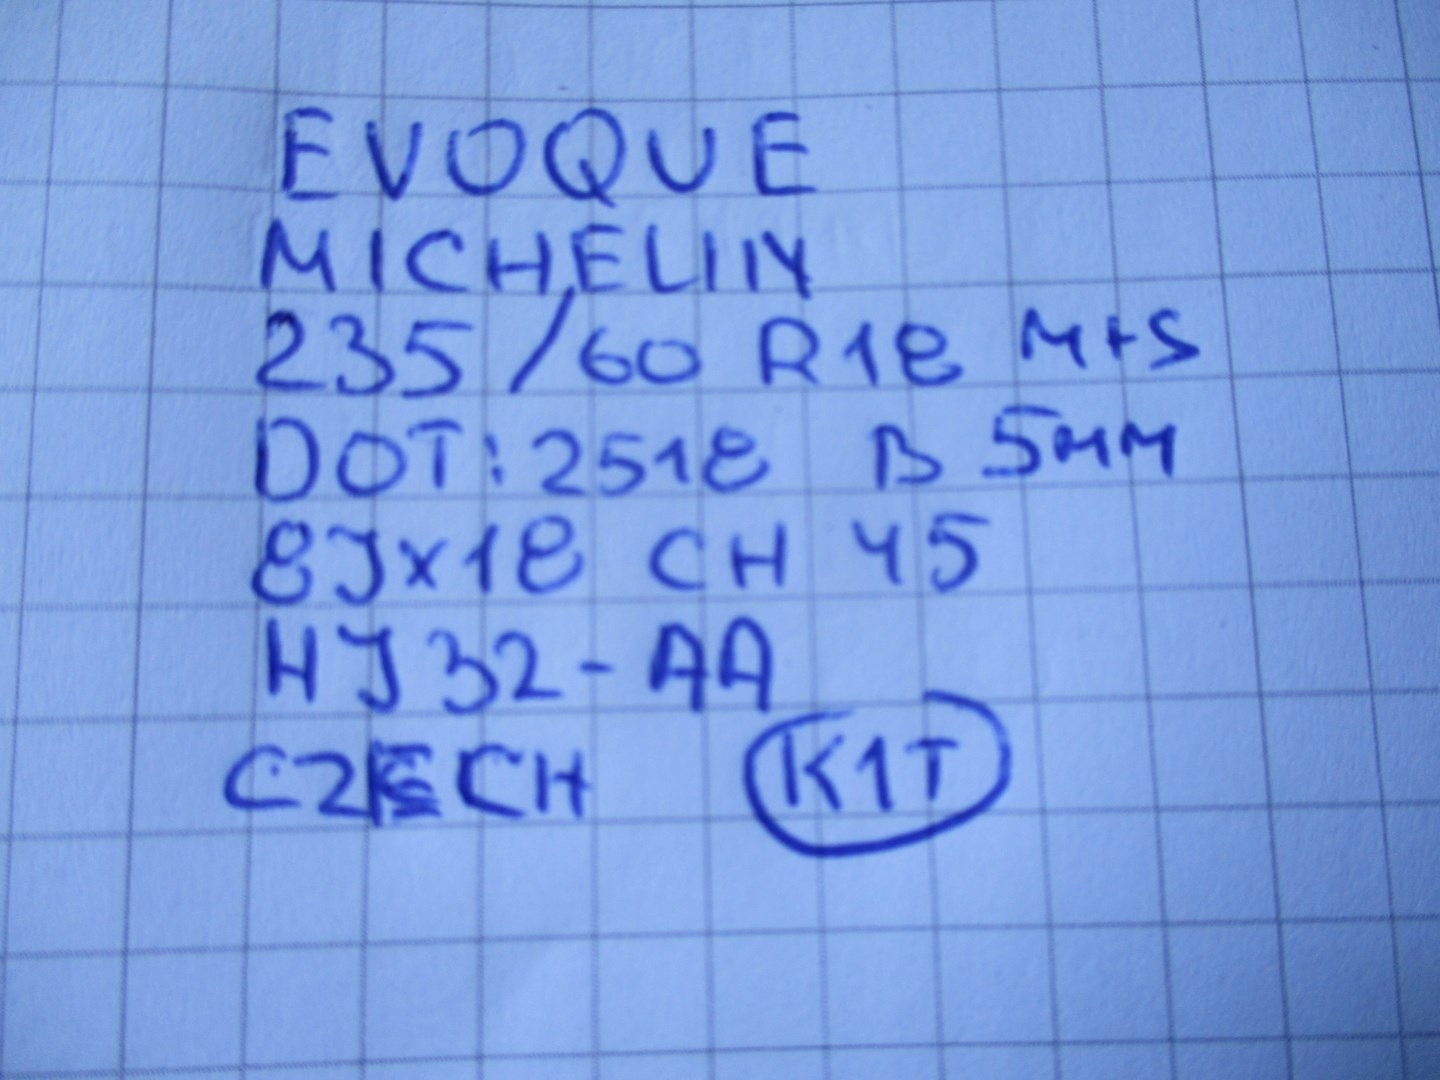 EVOQUE
MICHELIN
235/60 R18 M+S
DOT: 2518 B 5MM
8Jx18 CH 45
HJ32-AA
CZECH K1T